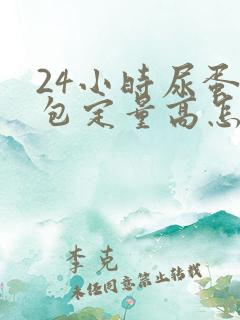 24小时尿蛋
包定量高怎
李克
未经同意禁止转载